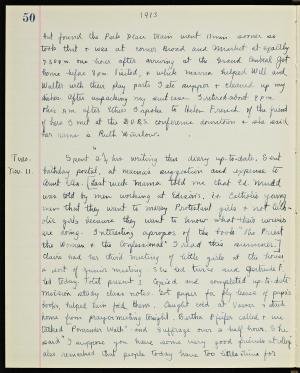 50
1913
but found the Park Place train went 17 min sooner so
took that & was at corner Broad and Market at exactly
7:30 P.M. one hour after arriving at the Grand Central. Got
home before 8 P.M. Visited, & while mama helped Will and
Walter with their play parts I ate supper & cleared up my
dishes. After unpacking my suit case I retired about 9 P.M.
This A.M. after Ethics I spoke to Helen French of the friend
of hers I met at the conference downtown & she said
her name is Ruth
Tues.
Nov. 11.
Spent 2 ½ hrs writing this diary up-to-date. Sent
birthday postal, at mama's suggestion and expense to
Aunt [Last week Mama told me that Ed.
was told by men working at Edison's, i.e. Catholic young
men that they want to marry Protestant girls & not Cath-
olic girls because they want to know what their wives
are doing. Interesting apropos of the book "The Priest
the Woman & the Confessional" I read this summer.]
Claire had her third meeting of little girls at the house
a sort of junior meeting. She led twice and Gertrude
led today. Total present I copied and completed up-to-date
mission study class notes. Cut paper for for leaves of pupil's
books, helped him fold them. Caught cold at Vassar & kept
home from prayer-meeting tonight. Bertha called & we
talked "Pomander Walk" and suffrage over a half hour. She
said "I suppose you have some very good friends at
also remarked that people today have too little time for